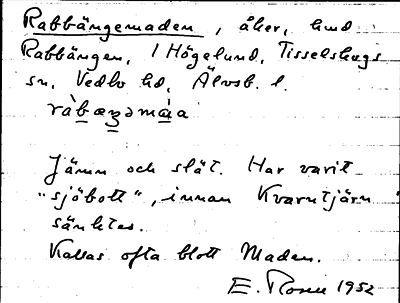 Rabbängemaden, åker, hmd
Rabbängen, 1 Högelund, Tisselskogs
sn, Vedbo hd, Älvsb. l.
ràbæŋəmàa
Jämn och slät. Har varit
"sjöbott", innan Kvarntjärn
sänktes.
Kallas ofta blott Maden.
E. Rosen 1952